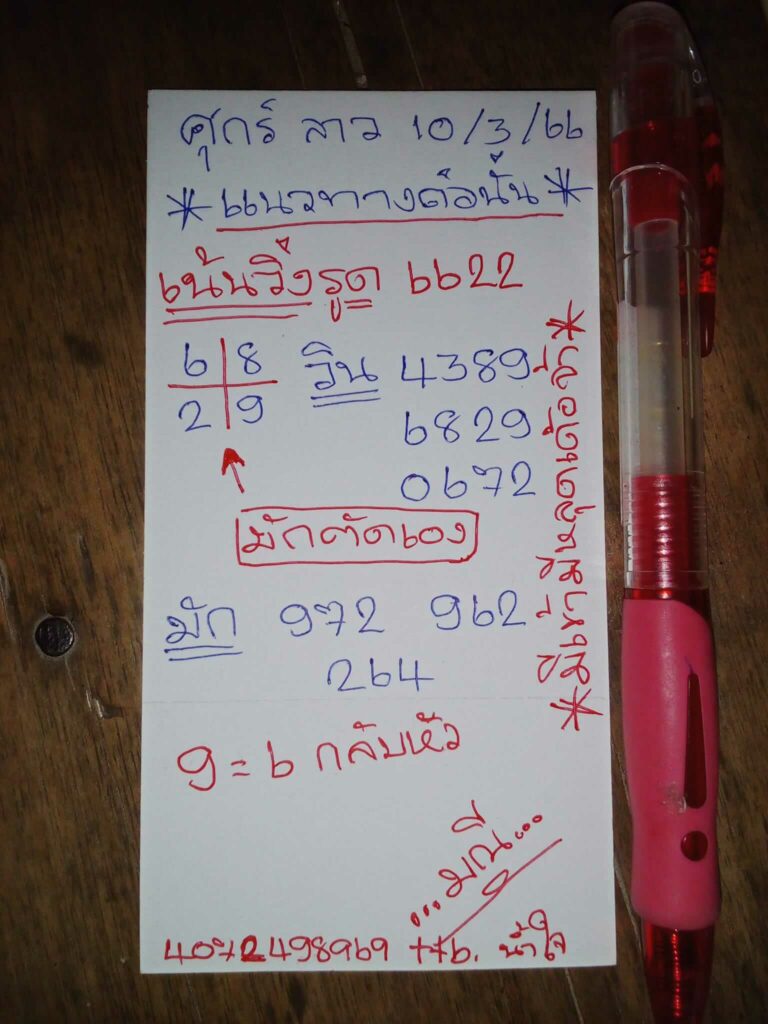 ศุกร์ ลาว 10/3/66
*แนวทางด้อนั้น*
เน้นวิ่งรูด 6622
6 8 วิน 4389
2 9 6829
0672
มักตัดเอง
มัก 972 962
264
9 = 6 กลับหัว
...มณี...
4072498969 ททb. น้ำใจ
*มีเข้ามีหลุดเด้อจ้า*